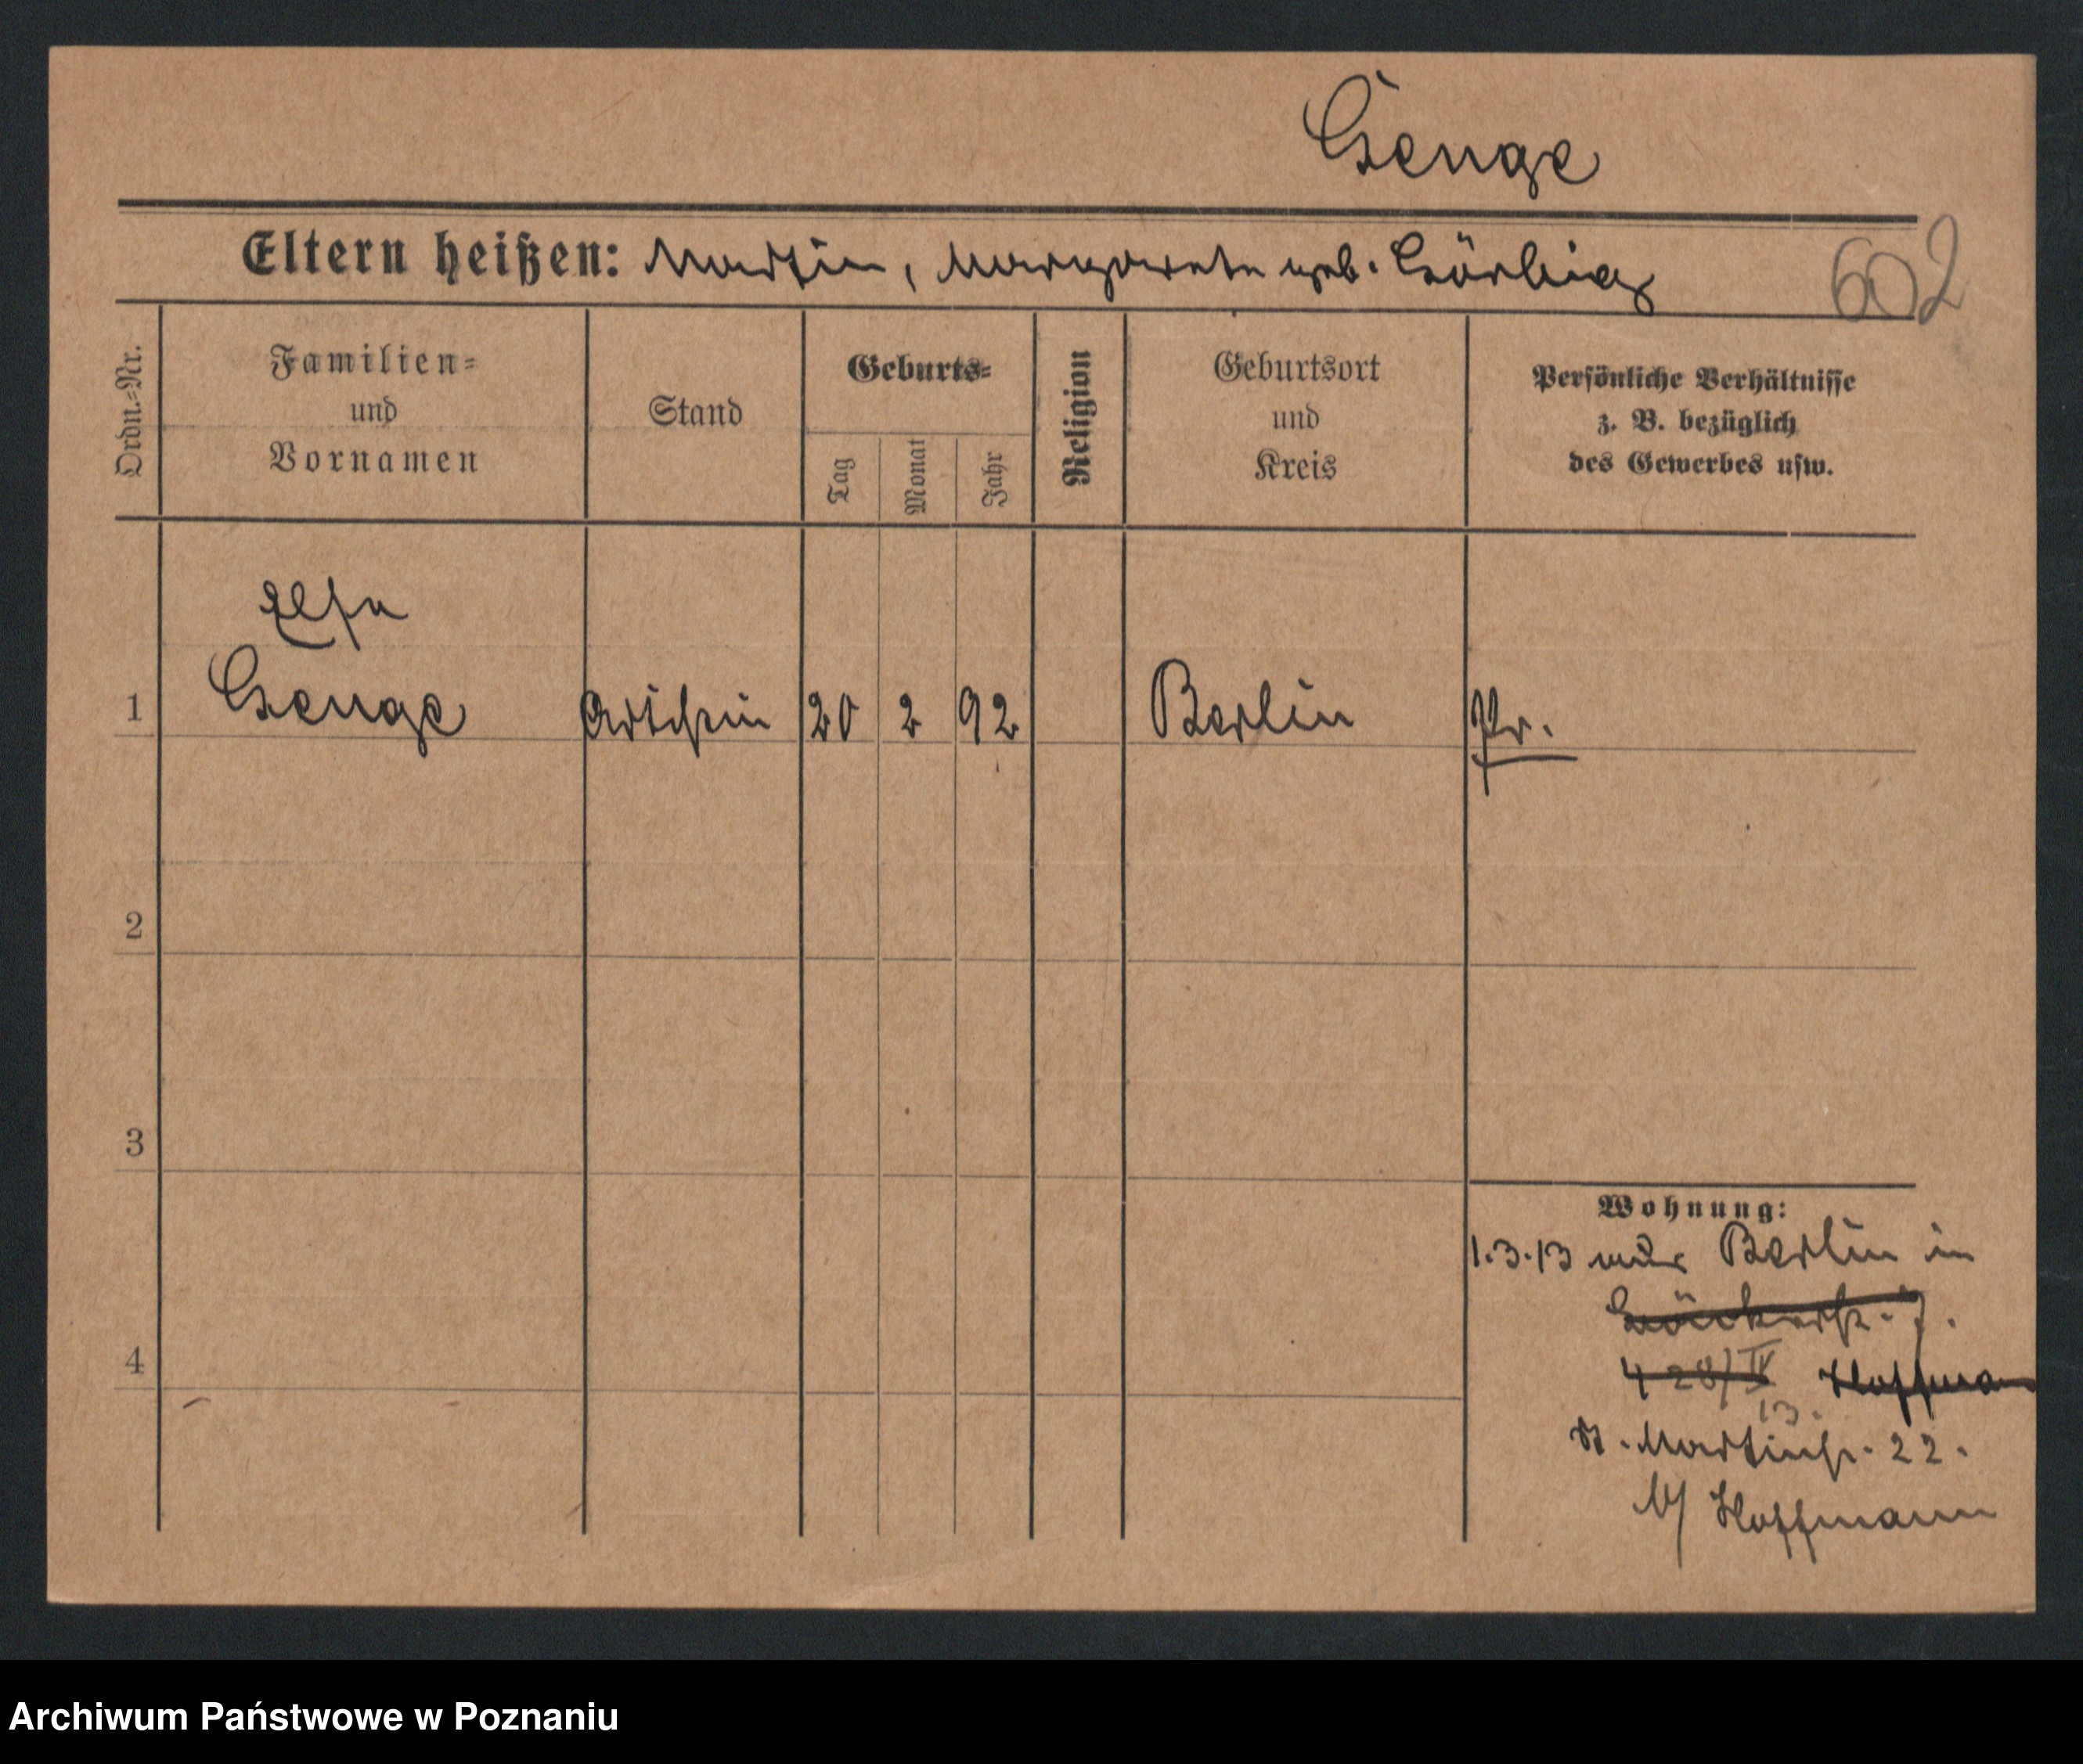 Genge
Eltern heißen: Martin, Margarete geb. Görbig
602
Ordn.-Nr.
Familien-
und
Vornamen
Stand
Geburts-
Tag
Monat
Jahr
Religion
Geburtsort
und
Kreis
Persönliche Verhältnisse
z. B. bezüglich
des Gewerbes usw.
Elsa
1 Genge Artistin 20 2 92 Berlin Pr.
2
3
4
Wohnung:
1.3.13 aus Berlin in
7.
4 28/IV Hoffman
13.
St. Martinstr. 22.
b/ Hoffmann
Archiwum Państwowe w Poznaniu